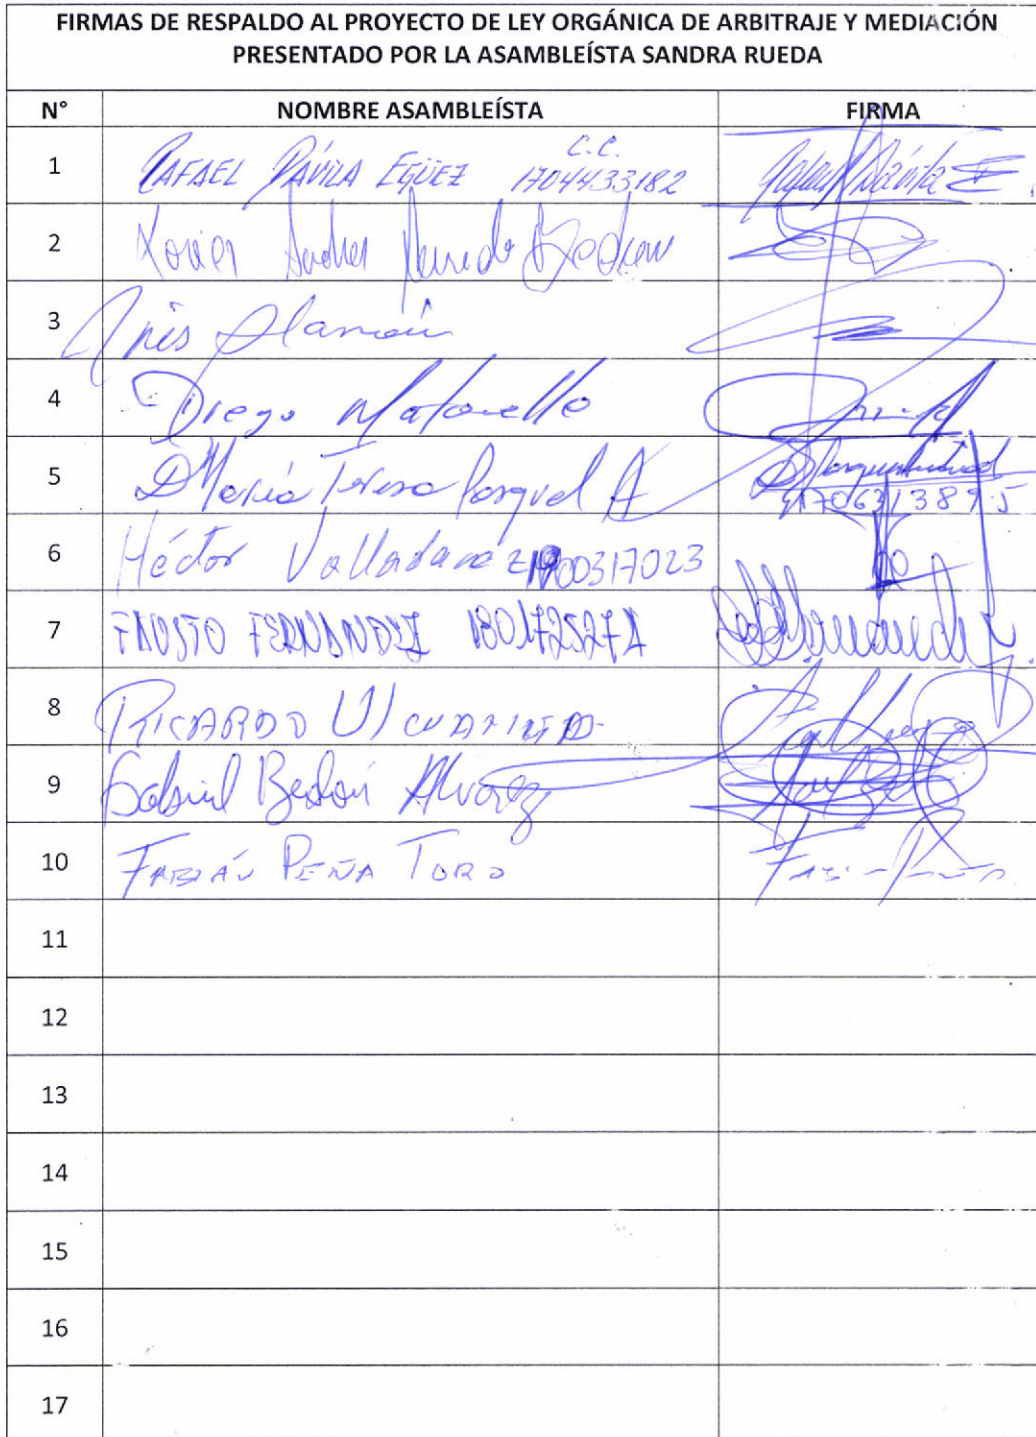 FIRMAS DE RESPALDO AL PROYECTO DE LEY ORGÁNICA DE ARBITRAJE Y MEDIACIÓN
PRESENTADO POR LA ASAMBLEÍSTA SANDRA RUEDA
N° NOMBRE ASAMBLEÍSTA FIRMA
1 RAFAEL DÁVILA EGÜEZ C.C. 1704433182 Rafael Dávila E.
2 Xavier Andrés
3 Inés Alarcón
4 Diego Matovelle
5 María Teresa Pasquel A 170631389-5
6 Héctor Valladarez 1900317023
7 FAUSTO FERNANDEZ
8 RICARDO
9 Gabriel Bedón Alvarez
10 FABIÁN PEÑA TORO
11
12
13
14
15
16
17